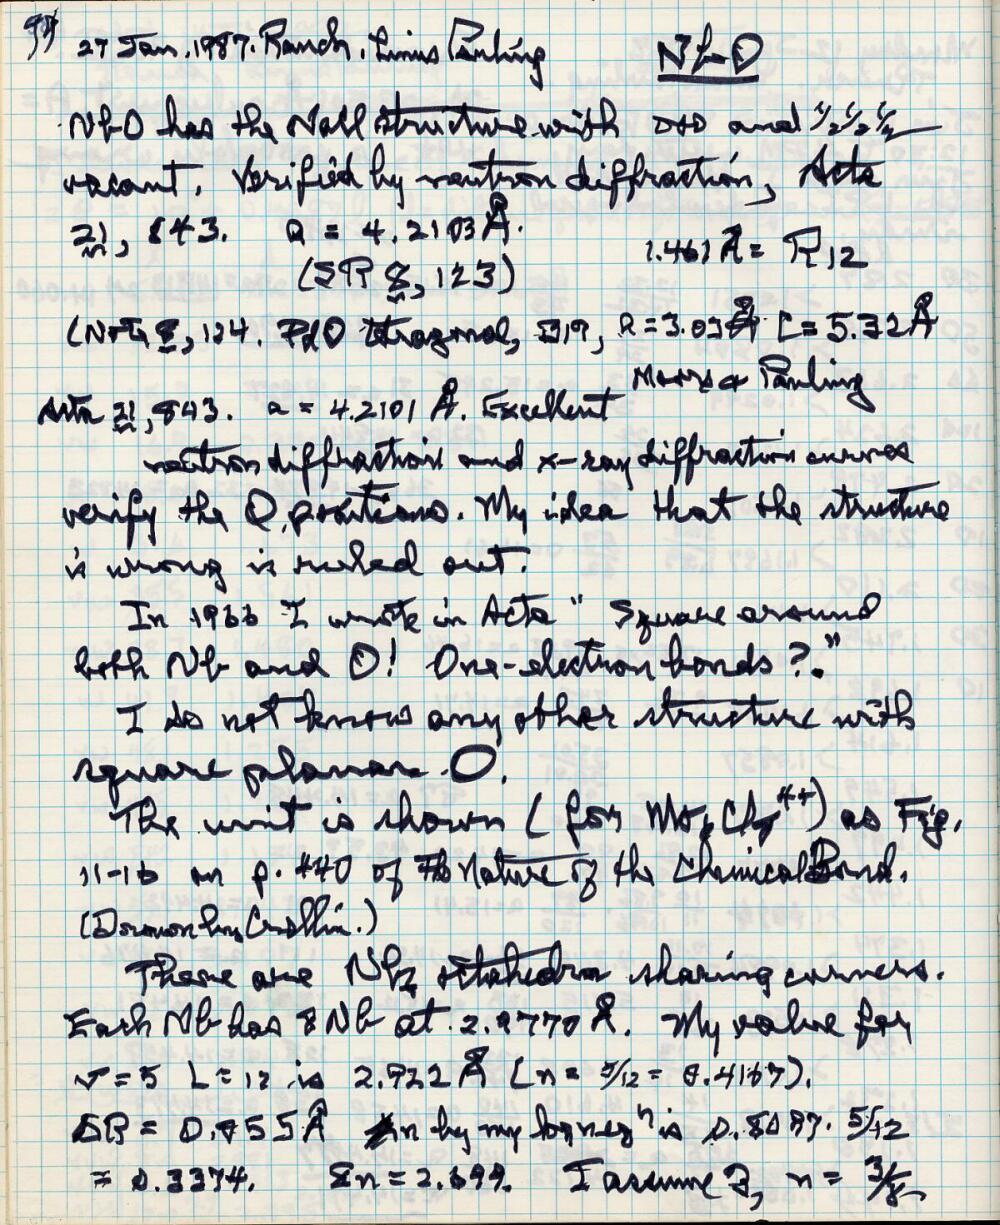 27 Jan. 1987. Ranch. Linus Pauling NbO
NbO has the NaCl structure with 000 and 1/2 1/2 1/2
vacant. Verified by neutron diffraction, Acta
21, 843. a = 4.2103 Å.
1.461 Å = R12
(SR 8, 123)
(Note 8, 124. PdO tetragonal, 319, a = 3.03 Å c = 5.32 Å
Moore & Pauling
Acta 21, 843. a = 4.2101 Å. Excellent
neutron diffraction and x-ray diffraction curves
verify the O positions. My idea that the structure
is wrong is ruled out.
In 1966 I wrote in Acta "Square around
both Nb and O! One-electron bonds?."
I do not know any other structure with
square planar O.
The unit is shown (for Mo6Cl8++) as Fig.
11-16 on p. 440 of The Nature of the Chemical Bond.
(Drawn by Crellin.)
There are Nb6 octahedra sharing corners.
Each Nb has 8 Nb at 2.9770 Å. My value for
v=5 L=12 is 2.922 Å (n = 5/12 = 0.4167).
ΔR = 0.055 Å n by my log is 0.8097. 5/12
= 0.3374. Σn = 2.699. I assume 3, n = 3/8